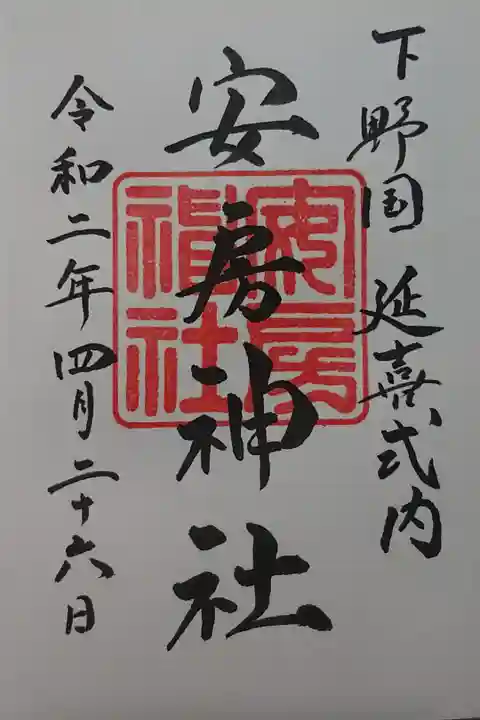 下野国 延喜式内
安房神社
安房神社
令和二年四月二十六日